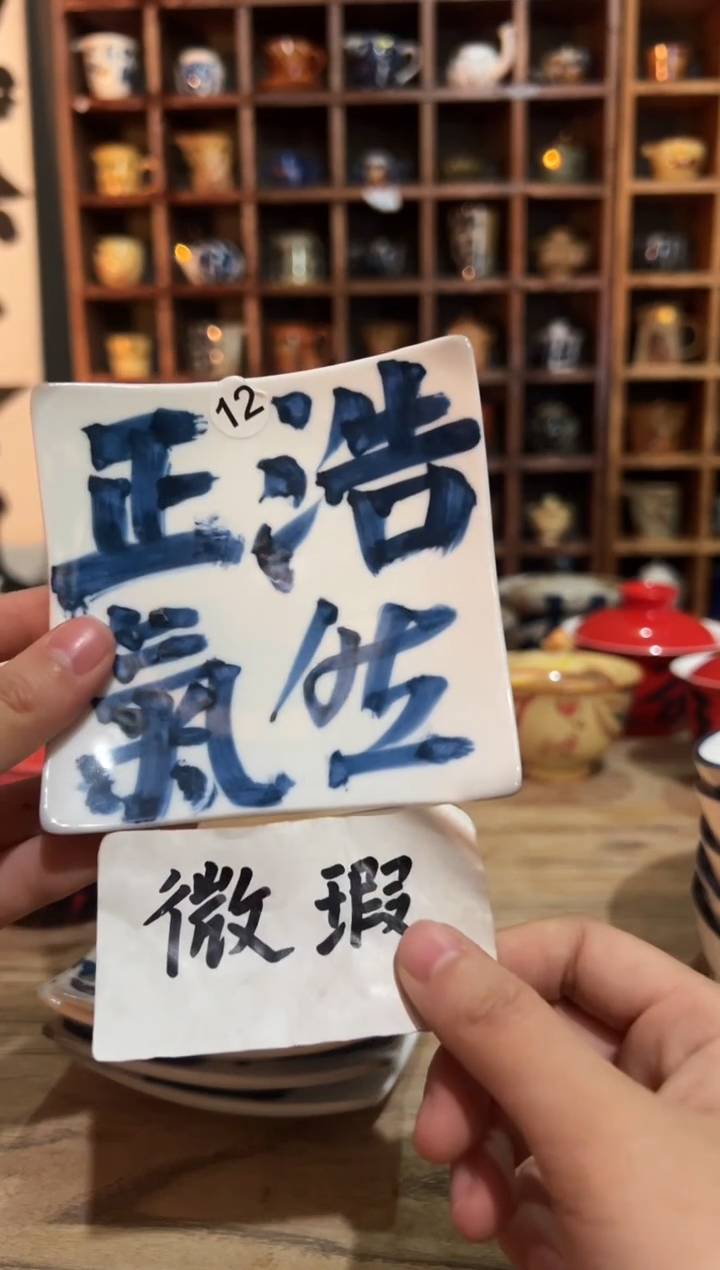 12
浩然
正氣
微瑕